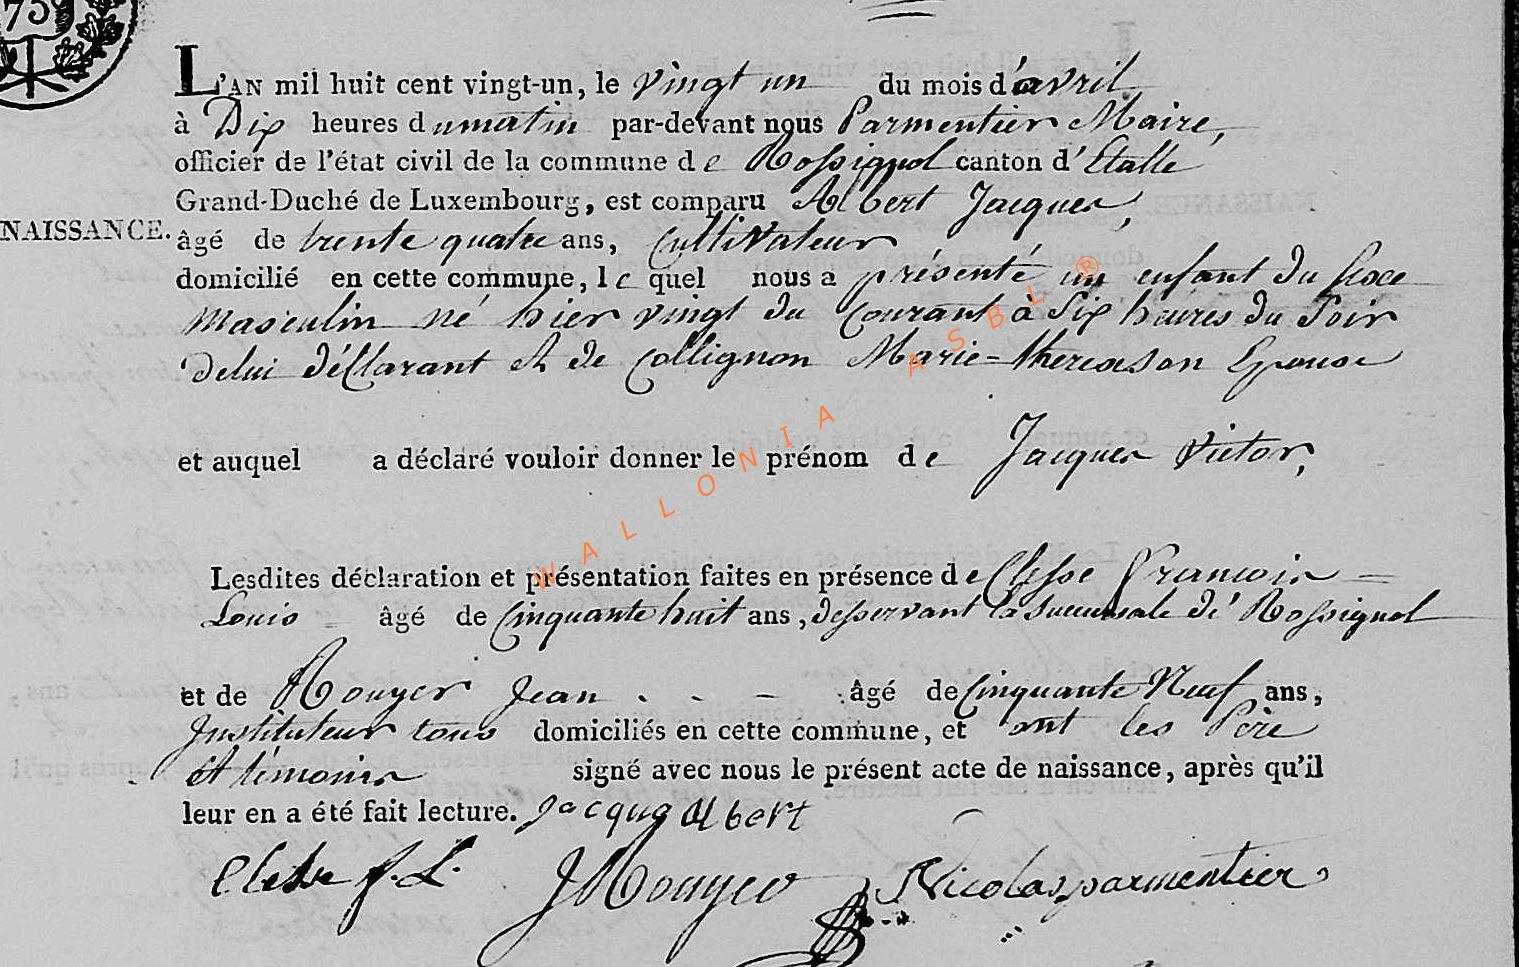 75
L'AN mil huit cent vingt-un, le vingt un du mois d'avril
à Dix heures du matin par-devant nous Parmentier Maire,
officier de l'état civil de la commune de Rossignol canton d'Etalle
Grand-Duché de Luxembourg, est comparu Albert Jacques,
NAISSANCE. âgé de trente quatre ans, Cultivateur
domicilié en cette commune, lequel nous a présenté un enfant du sexe
Masculin né hier vingt du Courant à Six heures du Soir
de lui déclarant et de Collignon Marie-therese son Epouse
et auquel a déclaré vouloir donner le prénom de Jacques Victor,
Lesdites déclaration et présentation faites en présence de Clesse Francois
Louis âgé de Cinquante huit ans, desservant la succursale de Rossignol
et de Rouyer Jean âgé de Cinquante Neuf ans,
Instituteur tous domiciliés en cette commune, et ont les Père
et témoins signé avec nous le présent acte de naissance, après qu'il
leur en a été fait lecture. Jacque albert
Clesse f. L. J Rouyer Nicolas parmentier
WALLONIA ASBL ®